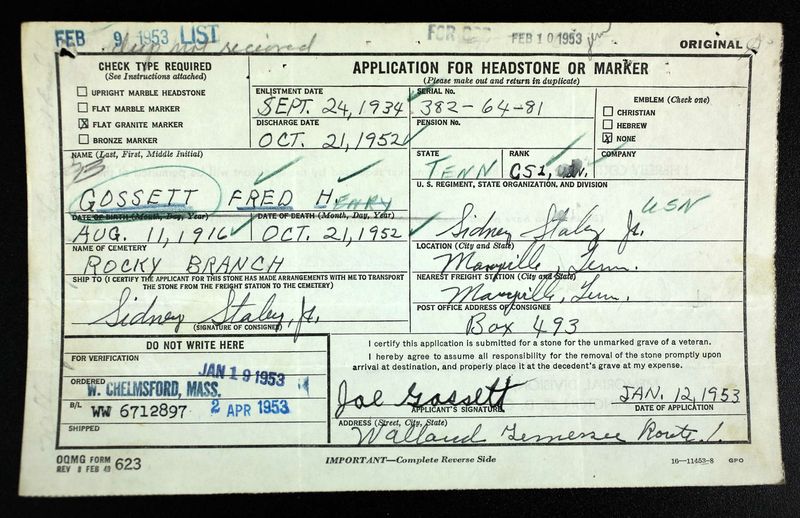 FEB 9 1953 LIST
dup not received
FEB 10 1953
ORIGINAL
CHECK TYPE REQUIRED
(See Instructions attached)
UPRIGHT MARBLE HEADSTONE
FLAT MARBLE MARKER
X FLAT GRANITE MARKER
BRONZE MARKER
APPLICATION FOR HEADSTONE OR MARKER
(Please make out and return in duplicate)
ENLISTMENT DATE
SEPT. 24, 1934
SERIAL No.
382-64-81
DISCHARGE DATE
OCT. 21, 1952
PENSION No.
EMBLEM (Check one)
CHRISTIAN
HEBREW
X NONE
NAME (Last, First, Middle Initial)
GOSSETT FRED HENRY
STATE
TENN
RANK
CS1
COMPANY
U. S. REGIMENT, STATE ORGANIZATION, AND DIVISION
USN
DATE OF BIRTH (Month, Day, Year)
AUG. 11, 1916
DATE OF DEATH (Month, Day, Year)
OCT. 21, 1952
Sidney Staley Jr.
NAME OF CEMETERY
ROCKY BRANCH
LOCATION (City and State)
Maryville Tenn.
SHIP TO (I CERTIFY THE APPLICANT FOR THIS STONE HAS MADE ARRANGEMENTS WITH ME TO TRANSPORT
THE STONE FROM THE FREIGHT STATION TO THE CEMETERY)
Sidney Staley, Jr.
(SIGNATURE OF CONSIGNEE)
NEAREST FREIGHT STATION (City and State)
Maryville, Tenn.
POST OFFICE ADDRESS OF CONSIGNEE
Box 493
DO NOT WRITE HERE
FOR VERIFICATION
JAN 19 1953
ORDERED
W. CHELMSFORD, MASS.
B/L
WW 6712897
2 APR 1953
SHIPPED
I certify this application is submitted for a stone for the unmarked grave of a veteran.
I hereby agree to assume all responsibility for the removal of the stone promptly upon
arrival at destination, and properly place it at the decedent's grave at my expense.
Joe Gossett
APPLICANT'S SIGNATURE
JAN. 12, 1953
DATE OF APPLICATION
ADDRESS (Street, City, State)
Walland Tennessee Route 1.
OQMG FORM
REV 8 FEB 49 623
IMPORTANT—Complete Reverse Side
16—11453-8 GPO